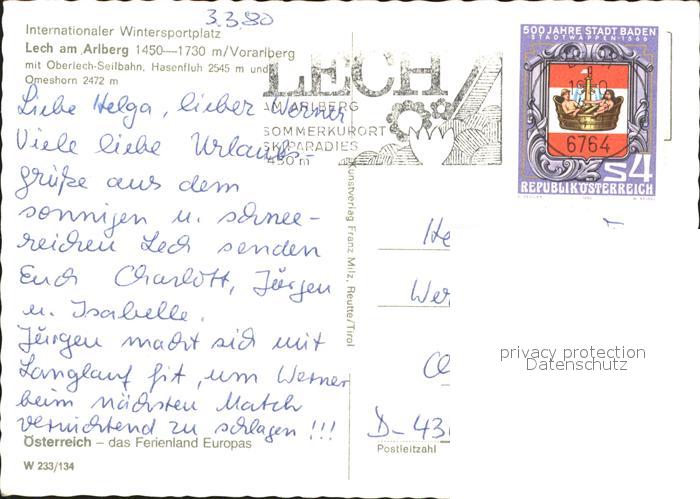 3.3.80
Internationaler Wintersportplatz
Lech am Arlberg 1450—1730 m/Vorarlberg
mit Oberlech-Seilbahn, Hasenfluh 2545 m und
Omeshorn 2472 m
Liebe Helga, lieber Werner
Viele liebe Urlaubs-
grüße aus dem
sonnigen u. schnee-
reichen Lech senden
Euch Charlott, Jürgen
u. Isabelle.
Jürgen macht sich mit
Langlauf fit, um Werner
beim nächsten Match
vernichtend zu schlagen !!!
Österreich – das Ferienland Europas
W 233/134
LECH
AM ARLBERG
SOMMERKURORT
SKIPARADIES
1450 m
Kunstverlag Franz Milz, Reutte/Tirol
500 JAHRE STADT BADEN
STADTWAPPEN · 1566
6764
S4
REPUBLIK ÖSTERREICH
He
Wer
D-43
Postleitzahl
privacy protection
Datenschutz